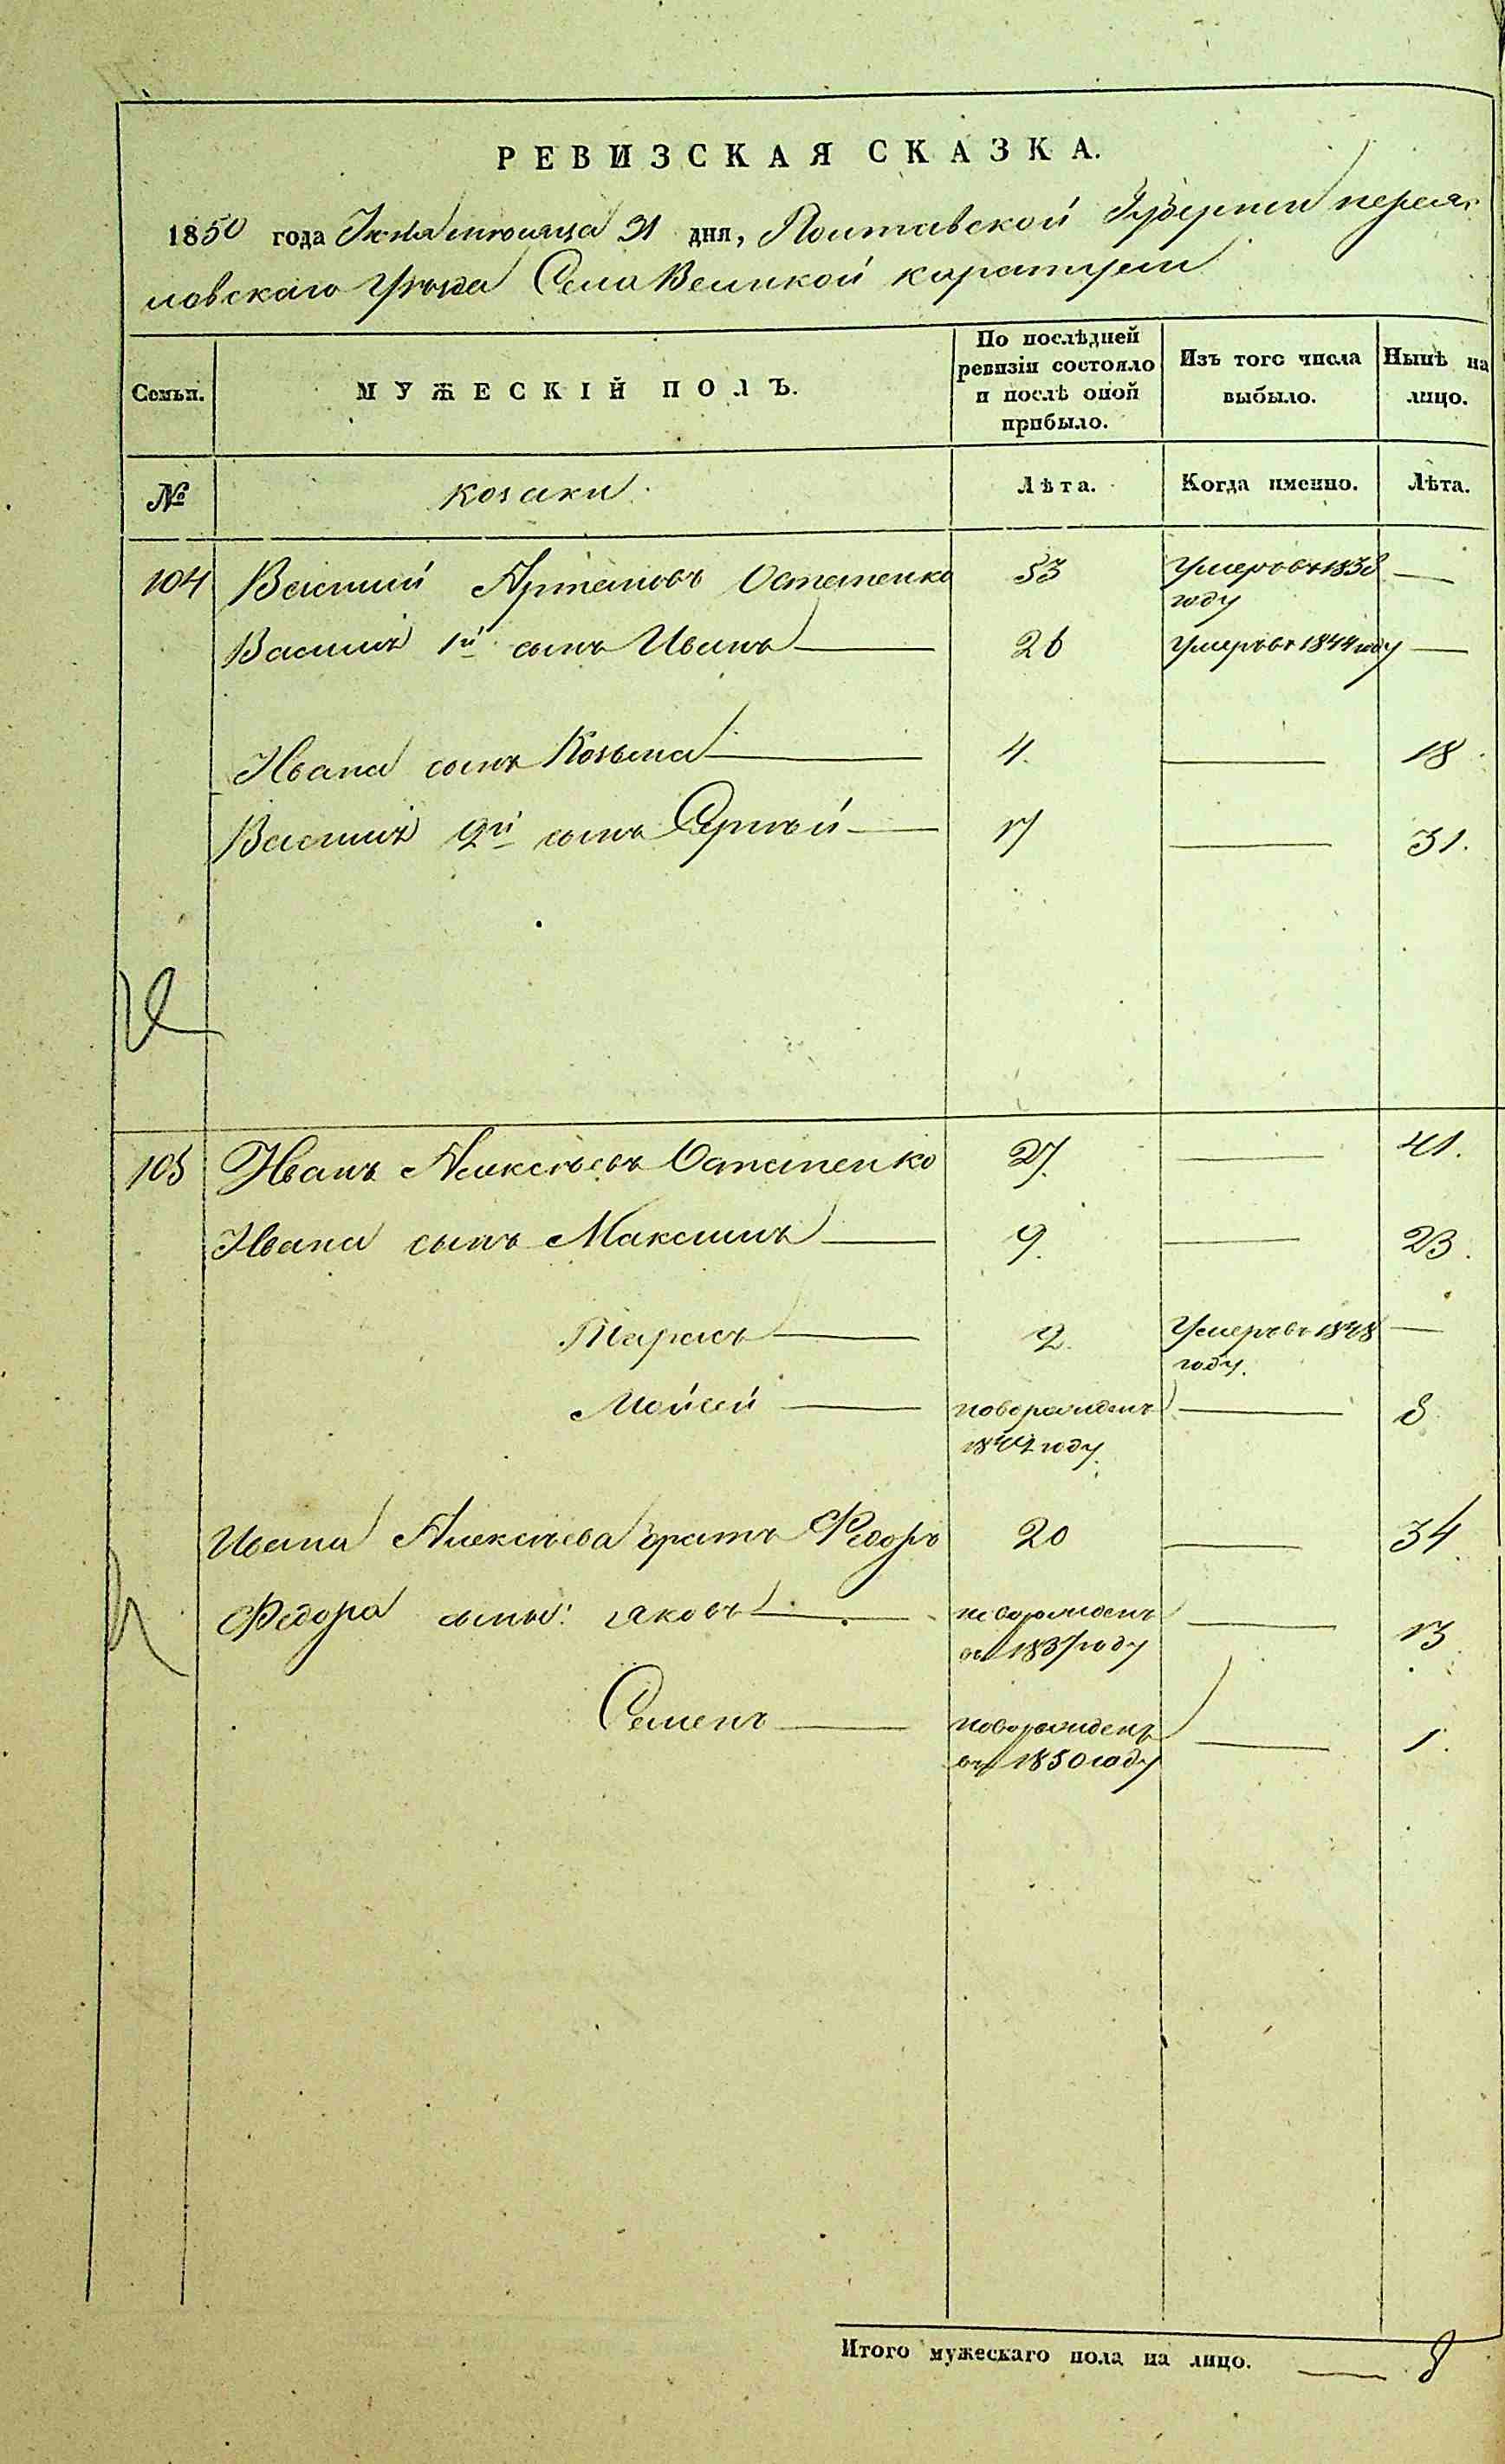 РЕВИЗСКАЯ СКАЗКА.
1850 года месяца 31 дня, Полтавской Губернии переяс
ловскаго Уѣзда Села Великой каратули
Семьи.
МУЖЕСКІЙ ПОЛЪ.
По послѣдней ревизіи состояло и послѣ оной прибыло.
Изъ того числа выбыло.
Нынѣ на лицо.
№ козаки. Лѣта. Когда именно. Лѣта.
104 Василий Артемовъ Остапенко 53 Умеръ въ 1838 году —
Василия 1й сынъ Иванъ 26 Умеръ въ 1844 году —
Ивана сынъ Козьма 4. — 18
Василия 2й сынъ Сергѣй 17 — 31.
105 Иванъ Алексѣевъ Остапенко 27. — 41.
Ивана сынъ Максимъ 9. — 23.
Тарасъ 2. Умеръ въ 1848 году. —
Мойсей новорожденъ 1842 году. — 8
Ивана Алексѣева братъ Федоръ 20 — 34
Федора сыны: Яковъ новорожденъ въ 1837 году — 13
Семенъ новорожденъ въ 1850 году — 1.
Итого мужескаго пола на лицо. — 8